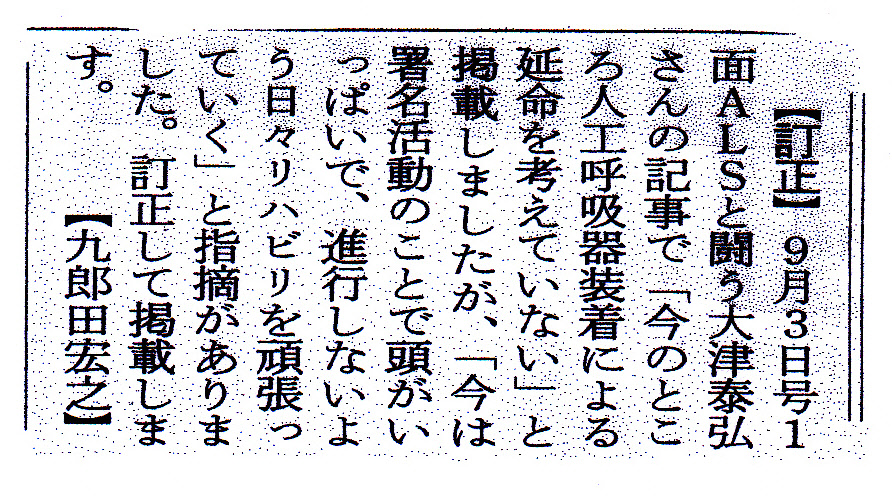 【訂正】 9月3日号1
面ALSと闘う大津泰弘
さんの記事で「今のとこ
ろ人工呼吸器装着による
延命を考えていない」と
掲載しましたが、「今は
署名活動のことで頭がい
っぱいで、進行しないよ
う日々リハビリを頑張っ
ていく」と指摘がありま
した。訂正して掲載しま
す。 【九郎田宏之】